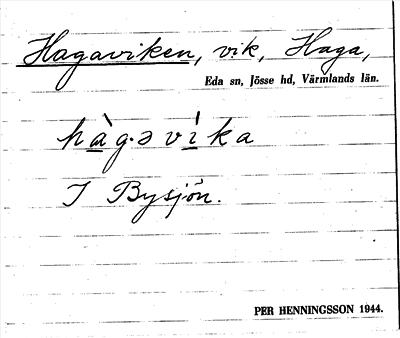 Hagaviken, vik, Haga,
Eda sn, Jösse hd, Värmlands län.
hàg·ə vı̍ka
I Bysjön.
PER HENNINGSSON 1944.